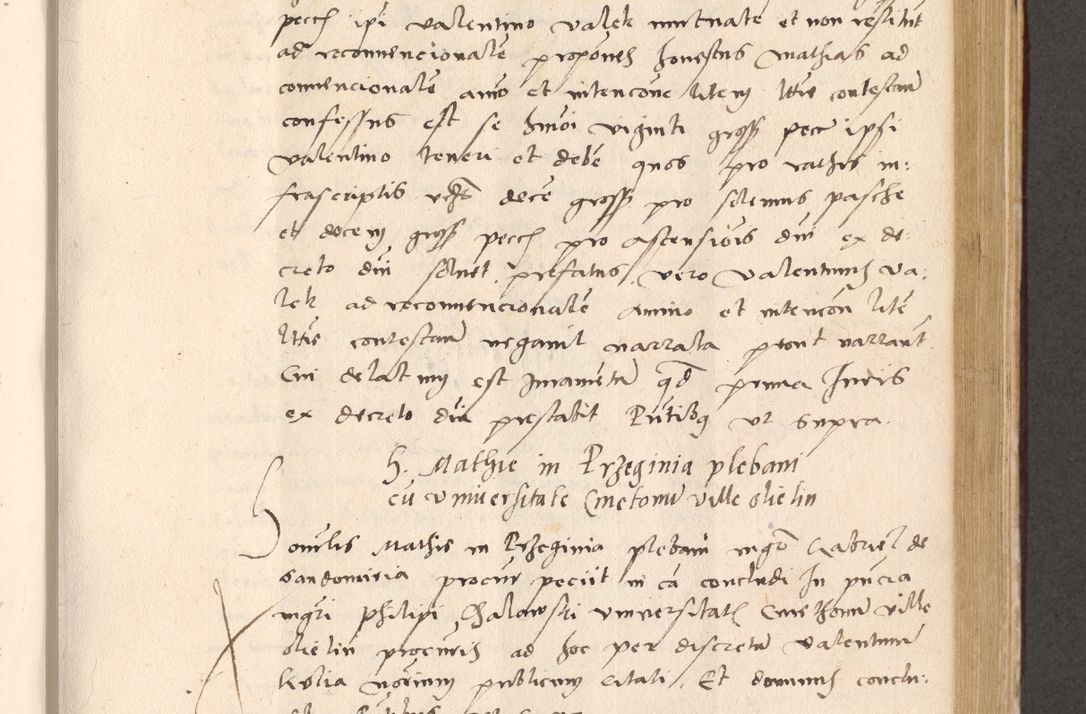 pecch ipi valentino valek mutuate et non restituit
ad reconvencionalē proponēs honestus Mathias ad
convencionalē aīmo et intencōne litem lttīe contestan̄
confessus est se hmōi viginti gross pecc ipsi
valentino teneri et debē quos pro rathis in:
frascriptis vz decē gross pro solemnis pasche
et decem gross pecch pro ascensiōis dnī ex de:
creto dnī solvet, prefatus vero valentinus va:
lek ad reconvencionalē animo et intencōn litē
lttīe contestan̄ negavit narrata prout narrant
Cui delatum est Juramentū qd prima Juris
ex decreto dnī prestabit Pn̄tibq ut supra
h. Mathie in Przeginia plebani
cū universitate Cmetonū ville Olielin
Honēlis Mathis in Przeginia plebani mgrō Gabriel de
Sandomiria procur peciit in cā concludi In pn̄cia
mgri Philipi Chalowski universitatē Cmethonū ville
Olielin procurīs ad hoc per discretū valentinū
notīum publicum citati. Et dominus conclu: